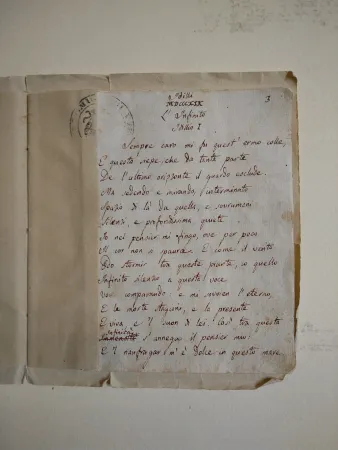 Idilli
3
MDCCCXIX
L'Infinito
Idillio I
Sempre caro mi fu quest'ermo colle,
E questa siepe, che da tanta parte
De l'ultimo orizzonte il guardo esclude.
Ma sedendo e mirando, l'interminato
Spazio di là da quella, e sovrumani
Silenzi, e profondissima quiete
Io nel pensier mi fingo, ove per poco
Il cor non si spaura. E come il vento
Odo stormir tra queste piante, io quello
Infinito silenzio a questa voce
Vo comparando: e mi sovvien l'eterno,
E le morte stagioni, e la presente
E viva, e 'l suon di lei. Così tra questa
Infinità
Immensità s'annega il pensier mio:
E 'l naufragar m'è dolce in questo mare.